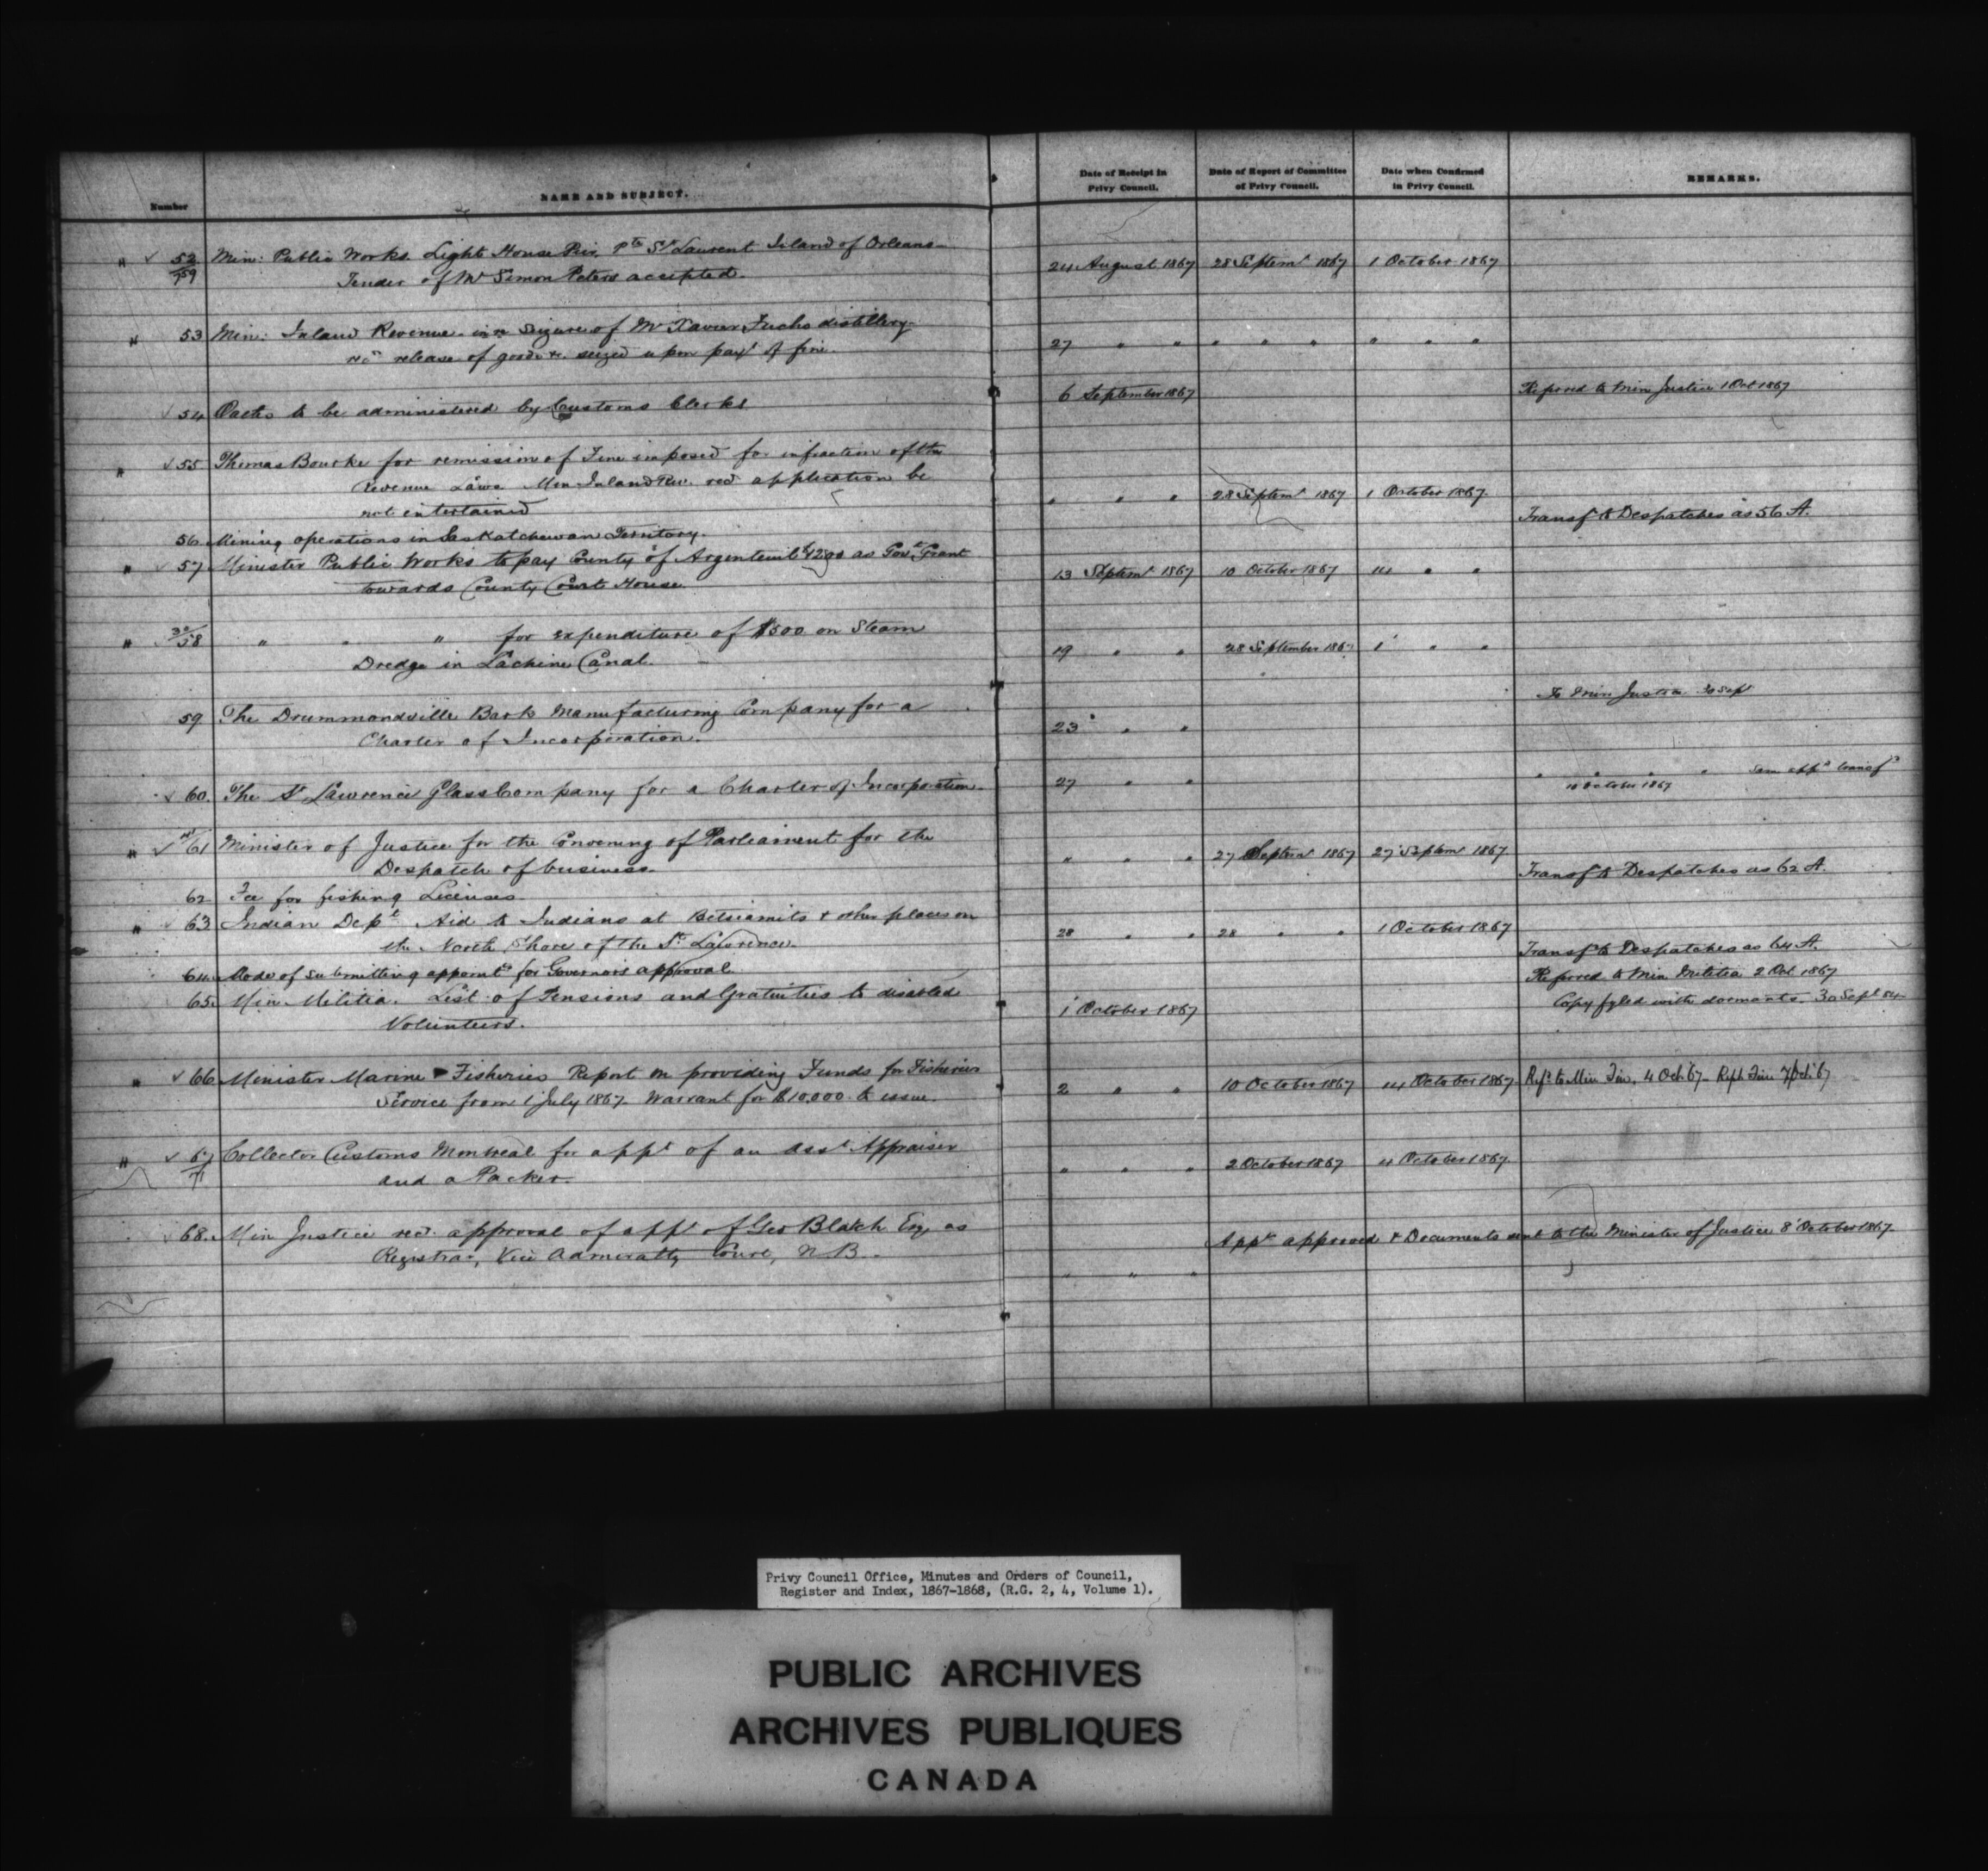 Number
NAME AND SUBJECT.
Date of Receipt in
Privy Council.
Date of Report of Committee
of Privy Council.
Date when Confirmed
in Privy Council.
REMARKS.
" ✓ 52/759 Min: Public Works Light House Pier, Pte St Laurent Island of Orleans
Tender of Mr Simon Peters accepted.
24 August 1867 28 Septemr 1867 1 October 1867
" 53 Min: Inland Revenue in re Seizure of Mr Xavier Fuchs distillery
release of goods &c. seized upon payt of fine.
27 " " " " " " " "
✓ 54 Oaths to be administered by Customs Clerks
6 September 1867 Referred to Min Justice 1 Oct 1867
" ✓ 55 Thomas Bourke for remission of Fine imposed for infraction of the
Revenue Laws Min Inland Rev. recd application be
not entertained
" " " 28 Septemr 1867 1 October 1867
56 Mining operations in Saskatchewan Territory.
Transfd to Despatches as 56 A.
" ✓ 57 Minister Public Works to pay County of Argenteuil $1200 as Govt Grant
towards County Court House
13 Septemr 1867 10 October 1867 14 " "
" ✓ 58 " " " for expenditure of $500 on Steam
Dredge in Lachine Canal.
19 " " 28 September 1867 1 " "
59 The Drummondville Bark Manufacturing Company for a
Charter of Incorporation.
23 " " To Min Justice 30 Sept
✓ 60. The St Lawrence Glass Company for a Charter of Incorporation
27 " " " " " "
10 October 1867
" ✓ 61 Minister of Justice for the Convening of Parliament for the
Despatch of business.
" " " 27 Septemr 1867 27 Septemr 1867
62 Fee for fishing Licenses
Transfd to Despatches as 62 A.
" 63 Indian Dept Aid to Indians at Betsiamits & other places on
the North Shore of the St Lawrence.
28 " " 28 " " 1 October 1867
64. Mode of submitting appointts for Governor's approval
Transfd to Despatches as 64 A.
65. Min Militia. List of Pensions and Gratuities to disabled
Volunteers.
1 October 1867
Referred to Min Militia 2 Oct 1867
Copy fyled with documents 30 Sept
" ✓ 66 Minister Marine & Fisheries Report on providing Funds for Fisheries
Service from 1 July 1867. Warrant for $10,000 to issue.
2 " " 10 October 1867 14 October 1867 Refd to Min Fin. 4 Oct '67 - Rept Fin. 7 Oct '67
" ✓ 67/71 Collector Customs Montreal for appt of an Asst Appraiser
and a Packer.
" " " 2 October 1867 4 October 1867
✓ 68. Min Justice recd approval of appt of Geo Blatch Esq as
Registrar, Vice Admiralty Court, N B.
" " "
Appt approved & Documents sent to the Minister of Justice 8 October 1867
Privy Council Office, Minutes and Orders of Council,
Register and Index, 1867-1868, (R.G. 2, 4, Volume 1).
PUBLIC ARCHIVES
ARCHIVES PUBLIQUES
CANADA